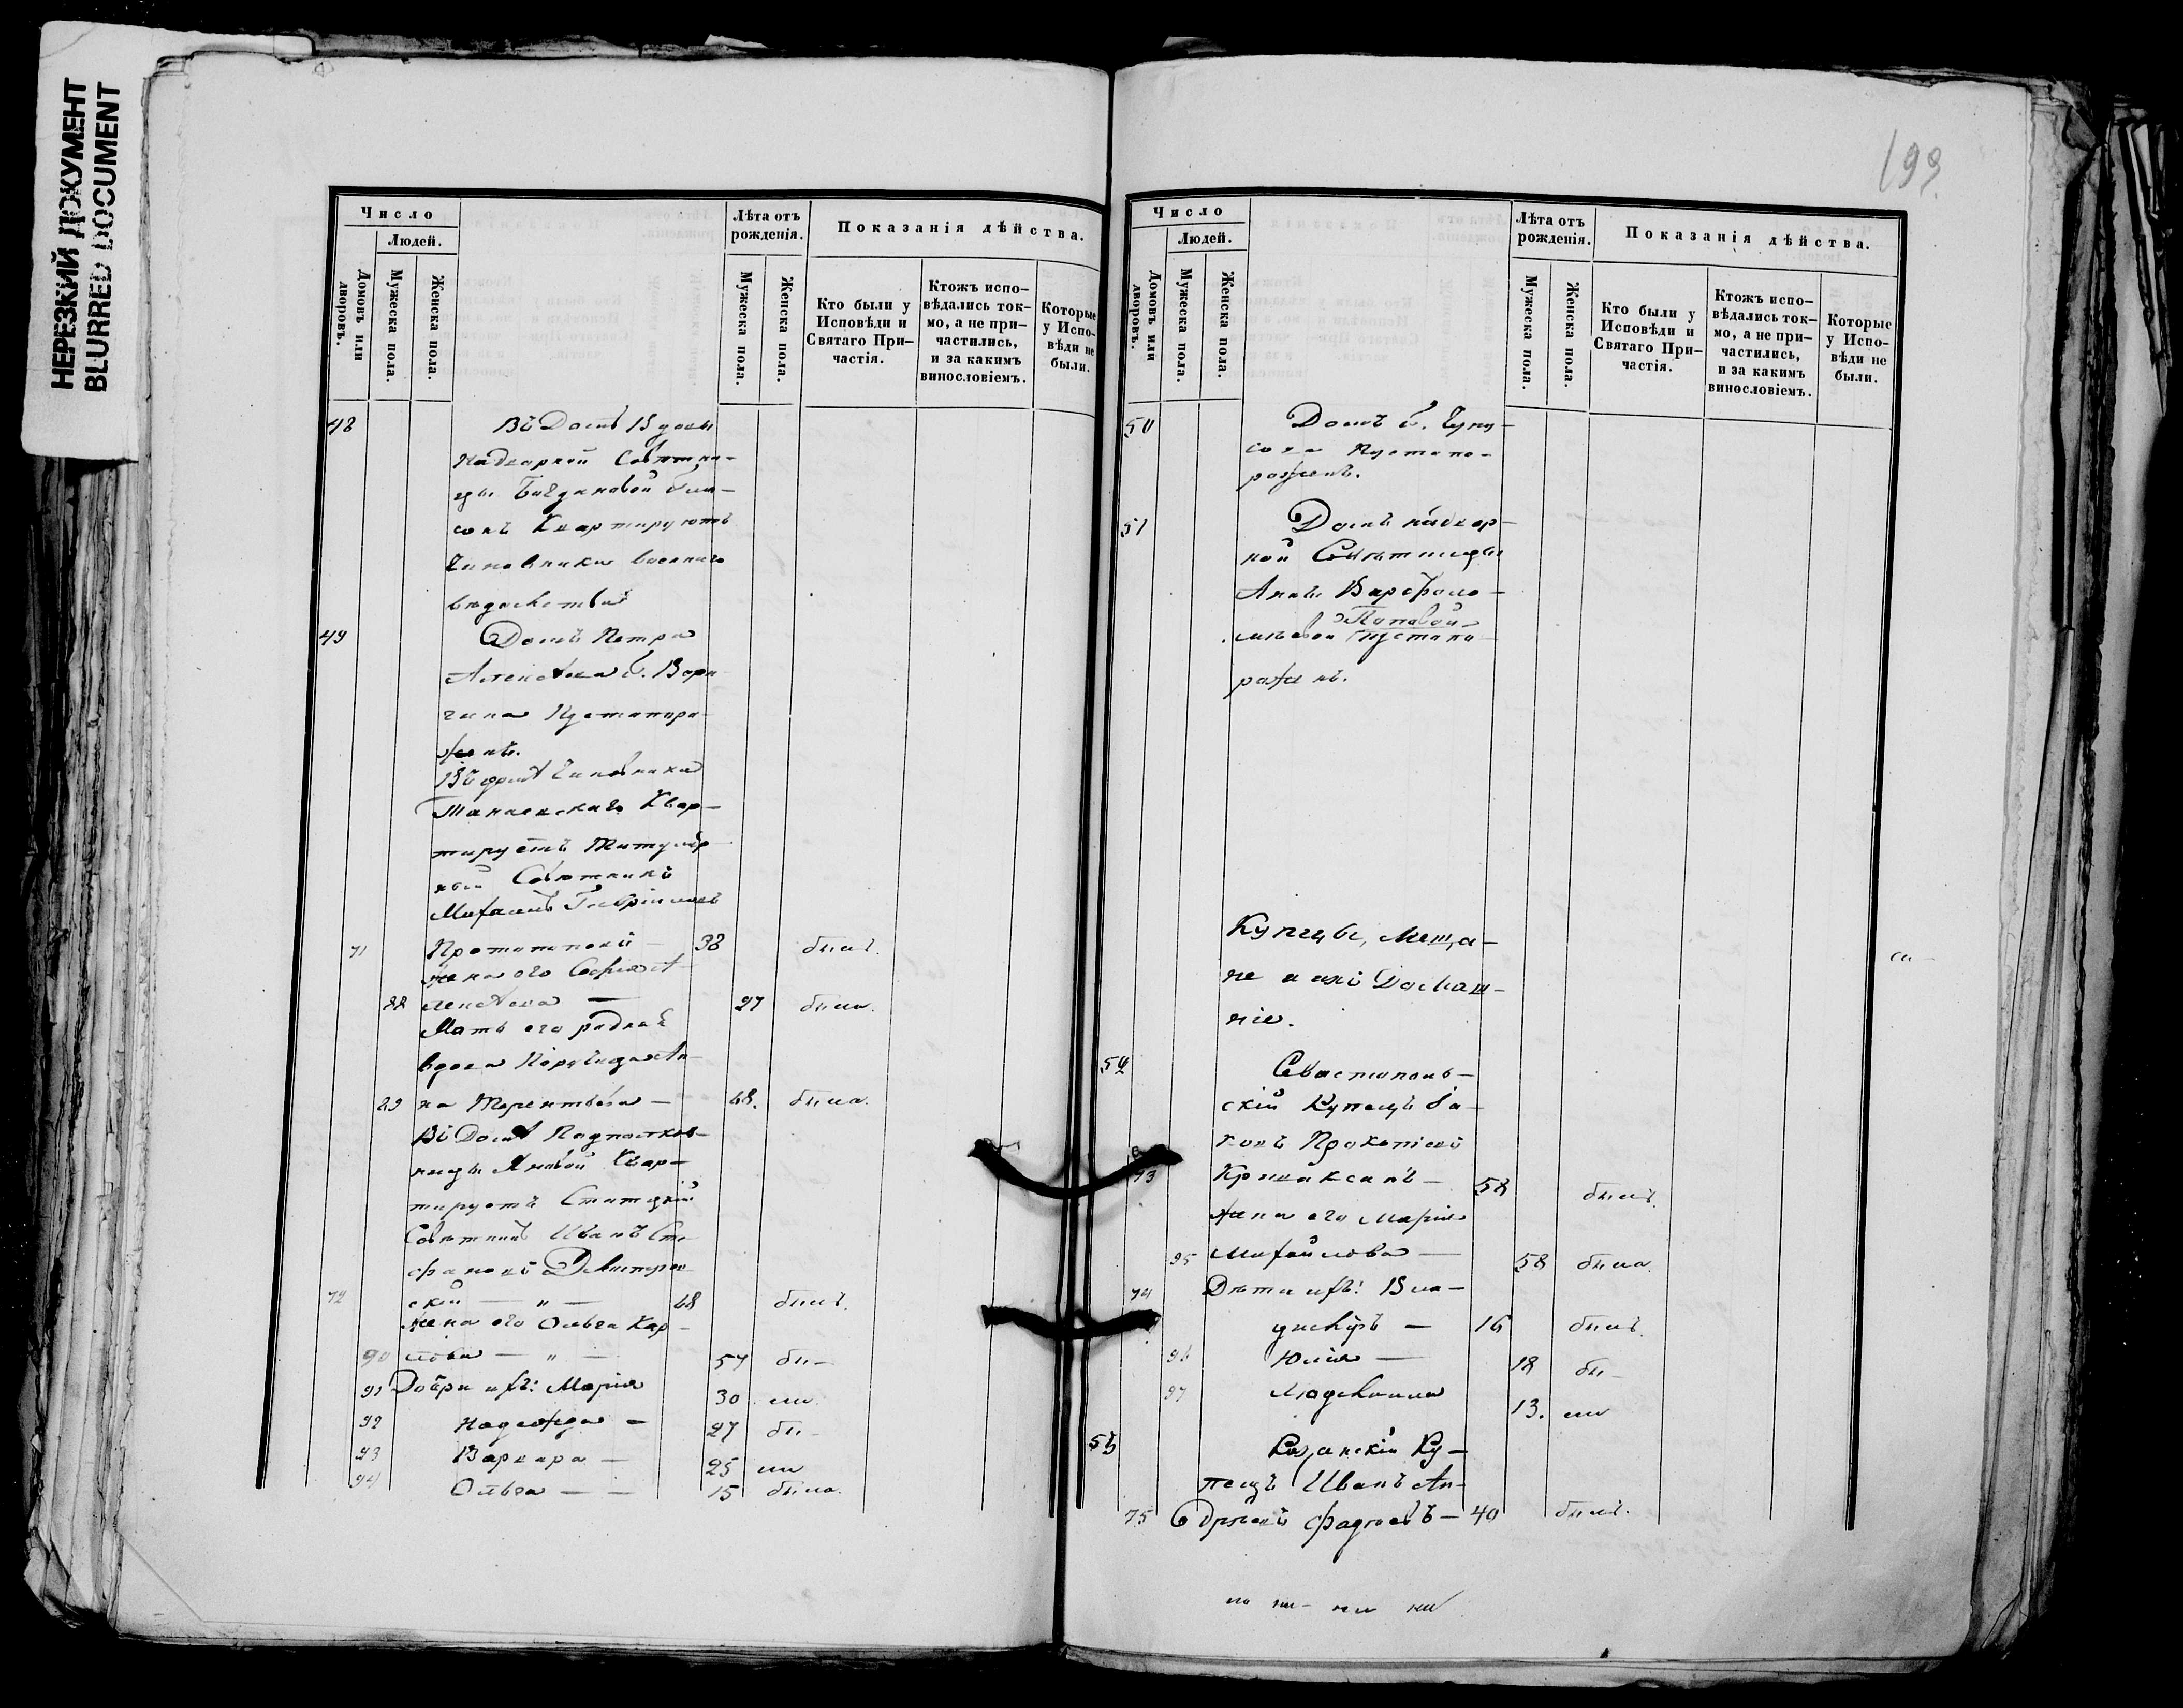 НЕРЕЗКИЙ ДОКУМЕНТ
BLURRED DOCUMENT
Число
Людей.
Домовъ или дворовъ.
Мужеска пола.
Женска пола.
Лѣта отъ рожденія.
Мужеска пола.
Женска пола.
Показанія дѣйства.
Кто были у Исповѣди и Святаго При-
частія.
Ктожъ испо-
вѣдались ток-
мо, а не при-
частились,
и за какимъ
винословіемъ.
Которые
у Испо-
вѣди не
были.
48 Въ Домѣ Вдовы
Надворной Совѣтни-
цы
Квартируютъ
Чиновники военнаго
вѣдомства
49 Домъ Петра
Алексѣева
Пустопоро-
женъ.
Въ домѣ Чиновника
Квар-
тируетъ Титуляр
ный Совѣтникъ
Михаилъ Гавріиловъ
71 38 былъ.
Жена его Софія А-
88 лексѣева — 27 была.
Мать его родная
вдова Ан-
89 на Терентьева — 68. была.
Въ Домѣ Подполков-
ницы Квар-
тируетъ Статскій
Совѣтникъ Иванъ Сте-
фановъ
72 скій — " — 68 былъ.
Жена его Ольга Кар-
90 лова — " — 54 бы-
91 Дочери ихъ: Марія 30 ли
92 Надежда — 27 бы-
93 Варвара — 25 ли
94 Ольга — — 15 была.
199
Число
Людей.
Домовъ или дворовъ.
Мужеска пола.
Женска пола.
Лѣта отъ рожденія.
Мужеска пола.
Женска пола.
Показанія дѣйства.
Кто были у Исповѣди и Святаго При-
частія.
Ктожъ испо-
вѣдались ток-
мо, а не при-
частились,
и за какимъ
винословіемъ.
Которые
у Испо-
вѣди не
были.
50 Домъ
Пустопо-
роженъ.
51 Домъ надвор-
ной Совѣтницы
Анны Варфоло-
Поповой
мѣевой Пустопо-
роженъ.
Купцы, Меща-
не и ихъ Домаш-
ніе.
54 Севастополь-
скій Купецъ Іа-
ковъ Прокопіевъ
73 58 былъ.
Жена его Марія
95 Михайлова — 58 была.
74 Дѣти ихъ: Вла-
диміръ — 16 былъ.
96 Юлія — 18 бы-
97 Людмила 13. ли
55 Казанскій Ку-
пецъ Иванъ Ан-
75 дреевъ Фадѣевъ — 40 былъ.